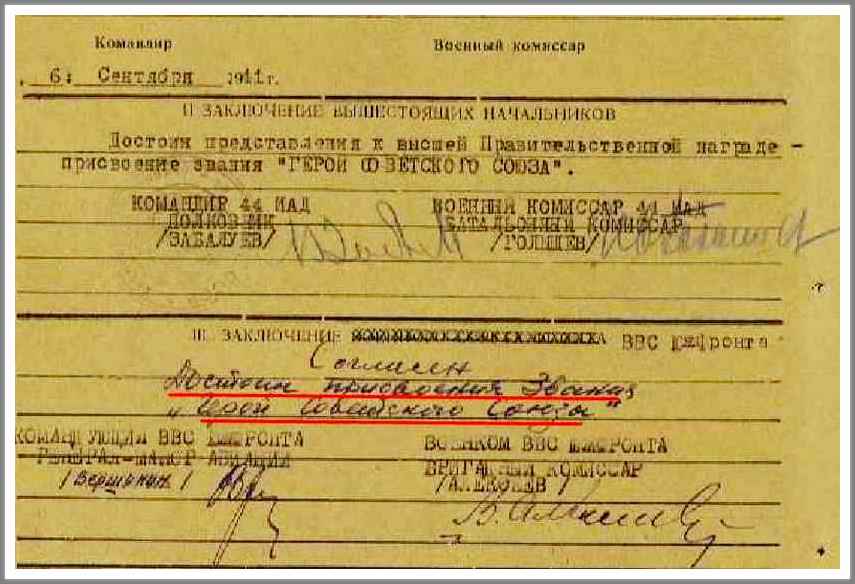 Командир Военный комиссар
6: Сентября 1941г.
II ЗАКЛЮЧЕНИЕ ВЫШЕСТОЯЩИХ НАЧАЛЬНИКОВ
Достоин представления к высшей Правительственной награде -
присвоение звания "ГЕРОЙ СОВЕТСКОГО СОЮЗА".
КОМАНДИР 44 ИАД ВОЕННЫЙ КОМИССАР 44 ИАД
ПОЛКОВНИК БАТАЛЬОННЫЙ КОМИССАР
/ЗАБАЛУЕВ/ /ГОЛЫШЕВ/
III ЗАКЛЮЧЕНИЕ ВВС фронта
Согласен
Достоин присвоения Звания
"Герой Советского Союза"
КОМАНДУЮЩИЙ ВВС ВОЕНКОМ ВВС
ГЕНЕРАЛ-МАЙОР АВИАЦИИ БРИГАДНЫЙ КОМИССАР
/Вершинин/ /АЛЕКСЕЕВ/